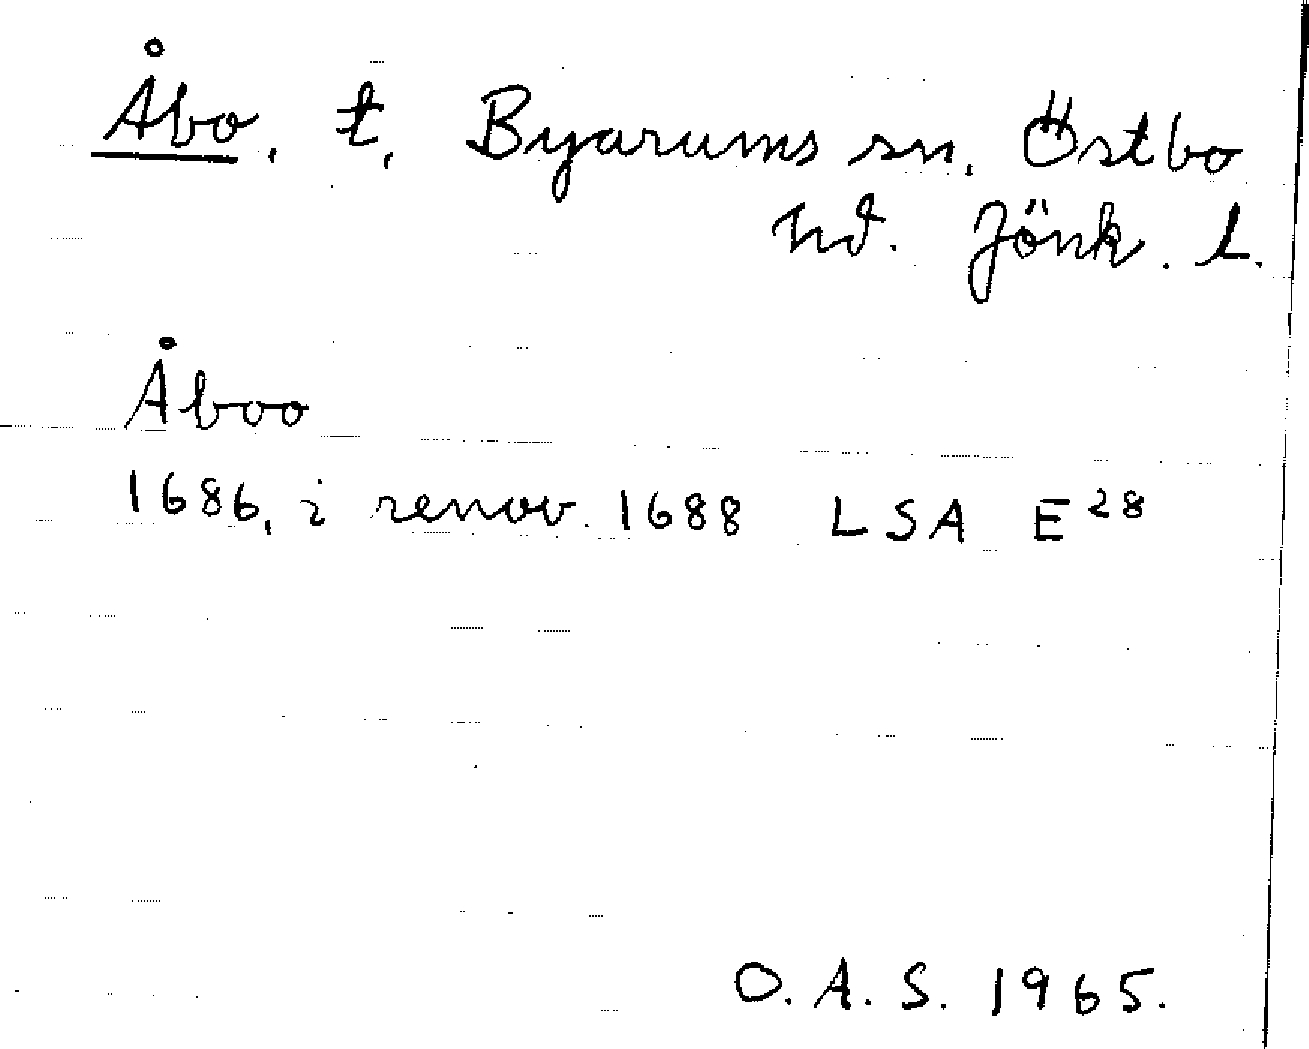 Åbo, t, Byarums sn, Östbo
hd. Jönk. l.
Åboo
1686, i renov. 1688 LSA E28
O. A. S. 1965.